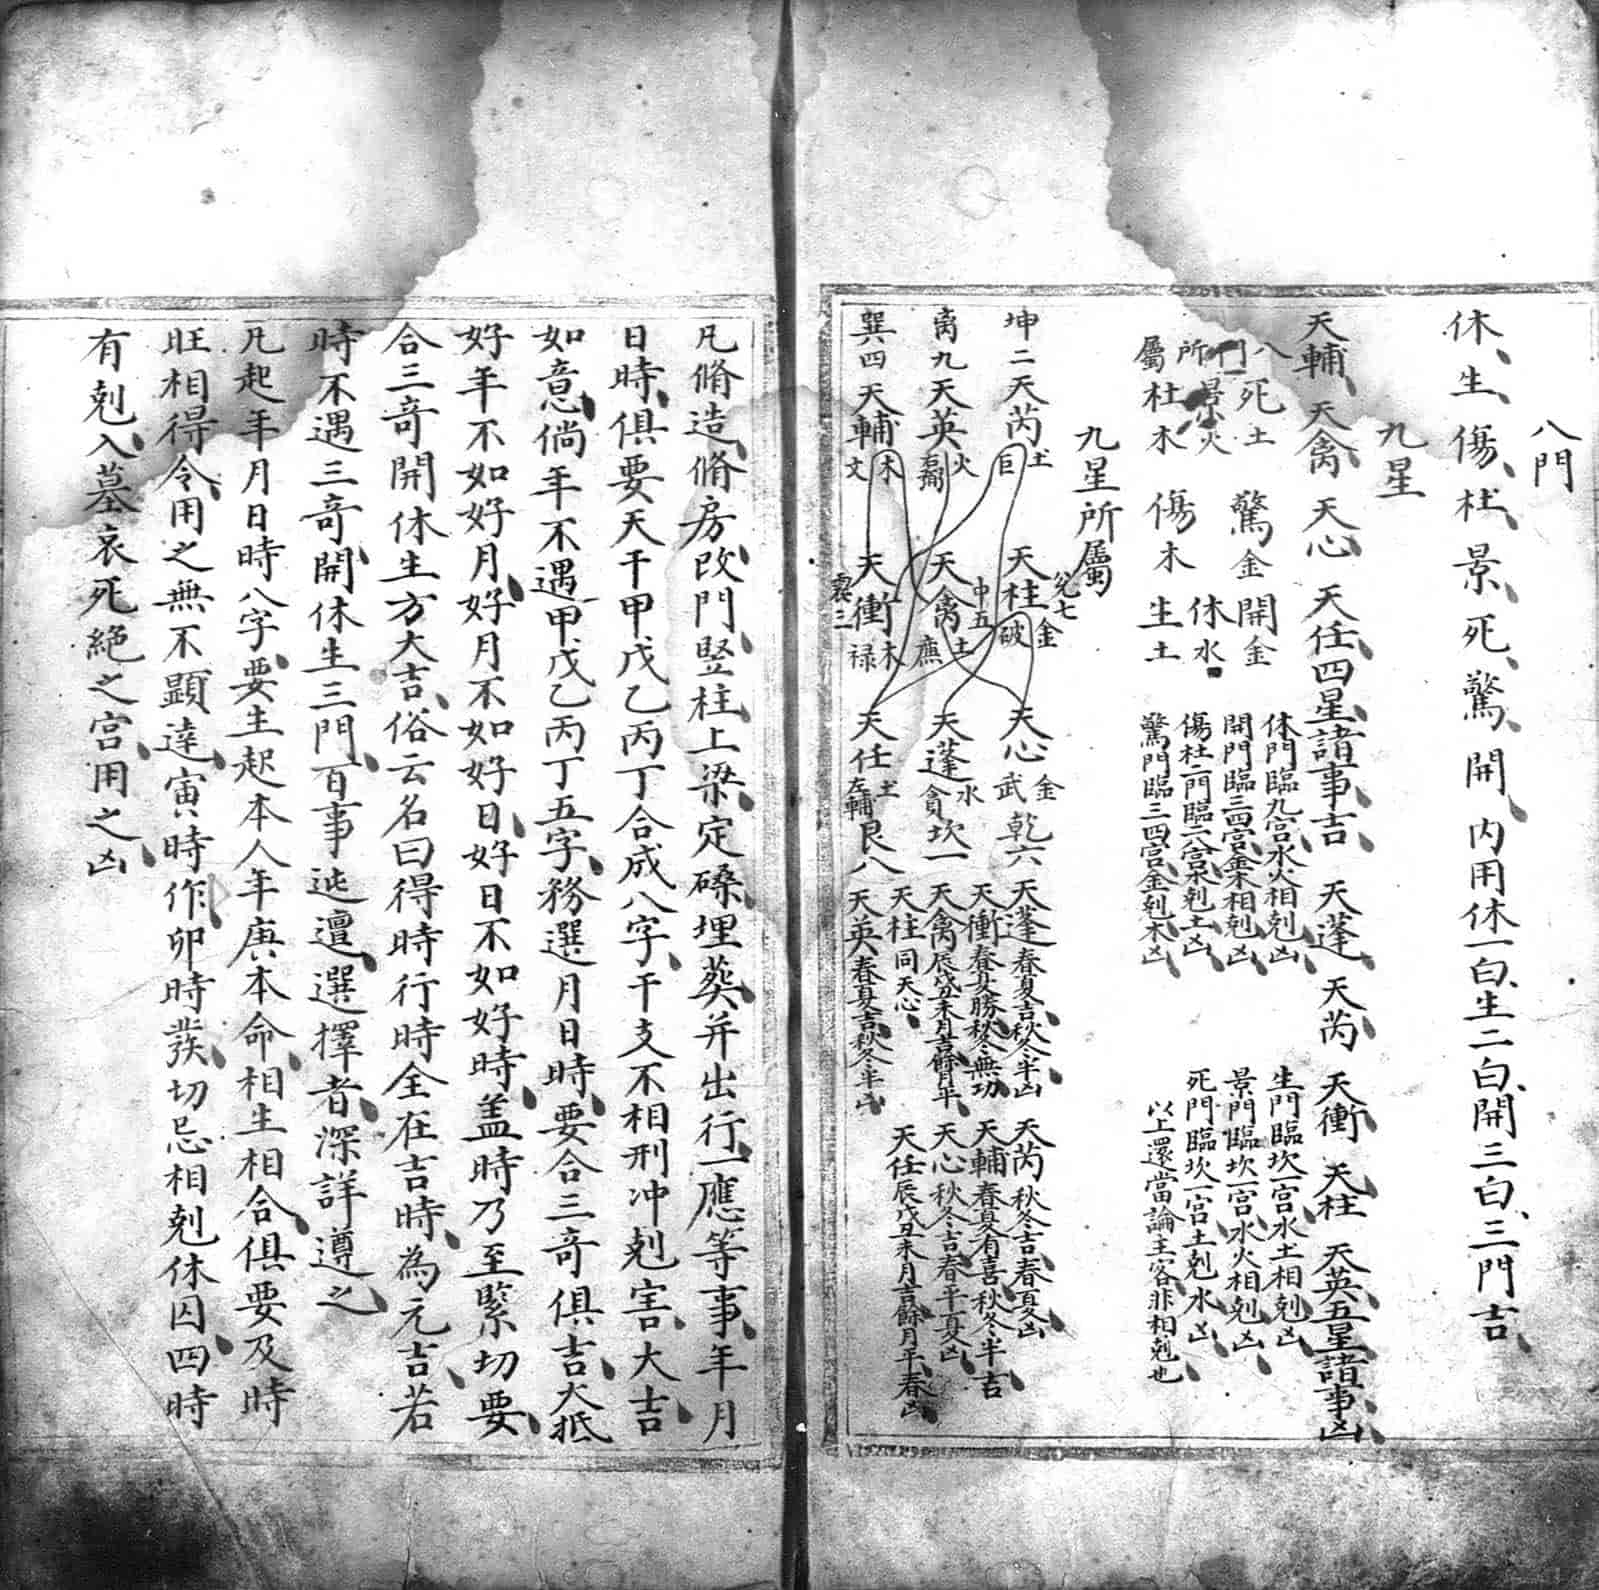 八門
休、生、傷、杜、景、死、驚、開、內用休一白、生二白、開三白、三門吉、
九星
天輔、天禽、天心、天任四星諸事吉、天蓬、天芮、天衝、天柱、天英五星諸事凶、
八門所屬
死土 驚金 開金
景火 休水
杜木 傷木 生土
休門臨九宮水火相剋凶、
開門臨三四宮金木相剋凶、
傷杜二門臨二八宮木剋土凶、
驚門臨三四宮金剋木凶、
生門臨坎一宮水土相剋凶、
景門臨坎一宮水火相剋凶、
死門臨坎一宮土剋水凶、
以上還當論主客非相剋也
九星所屬
坤二天芮土巨 天柱兌七金破 天心金武乾六
離九天英火 天禽中五土廉 天蓬水貪坎一
巽四天輔木文 天衝震三木祿 天任土左輔艮八
天蓬春夏吉秋冬半凶、
天衝春夏勝秋冬無功
天禽辰戌丑未月吉餘月平、
天柱同天心、
天英春夏吉秋冬半凶
天芮秋冬吉春夏凶、
天輔春夏有喜秋冬半吉
天心秋冬吉春平夏凶、
天任辰戌丑未月吉餘月平春凶、
凡脩造、脩房改門、竪柱、上梁、定磉埋葵、并出行、一應等事、年月
日時、俱要天干甲戊乙丙丁合成八字、干支不相刑冲剋害、大吉、
如意、倘年不遇甲戊乙丙丁五字、務選月日時、要合三奇俱吉、大抵
好年不如好月、好月不如好日、好日不如好時、盖時乃至緊切要、
合三奇開休生方大吉、俗云名曰得時行時全在吉時、為元吉、若
時不遇三奇開休生三門、百事迍邅、選擇者、深詳遵之、
凡起年月日時八字、要生起本人年庚本命、相生相合、俱要及時
旺相得令、用之無不顯達、寅時作、卯時發、切忌相剋休囚、四時
有剋、入墓衰死絶之宮、用之凶、